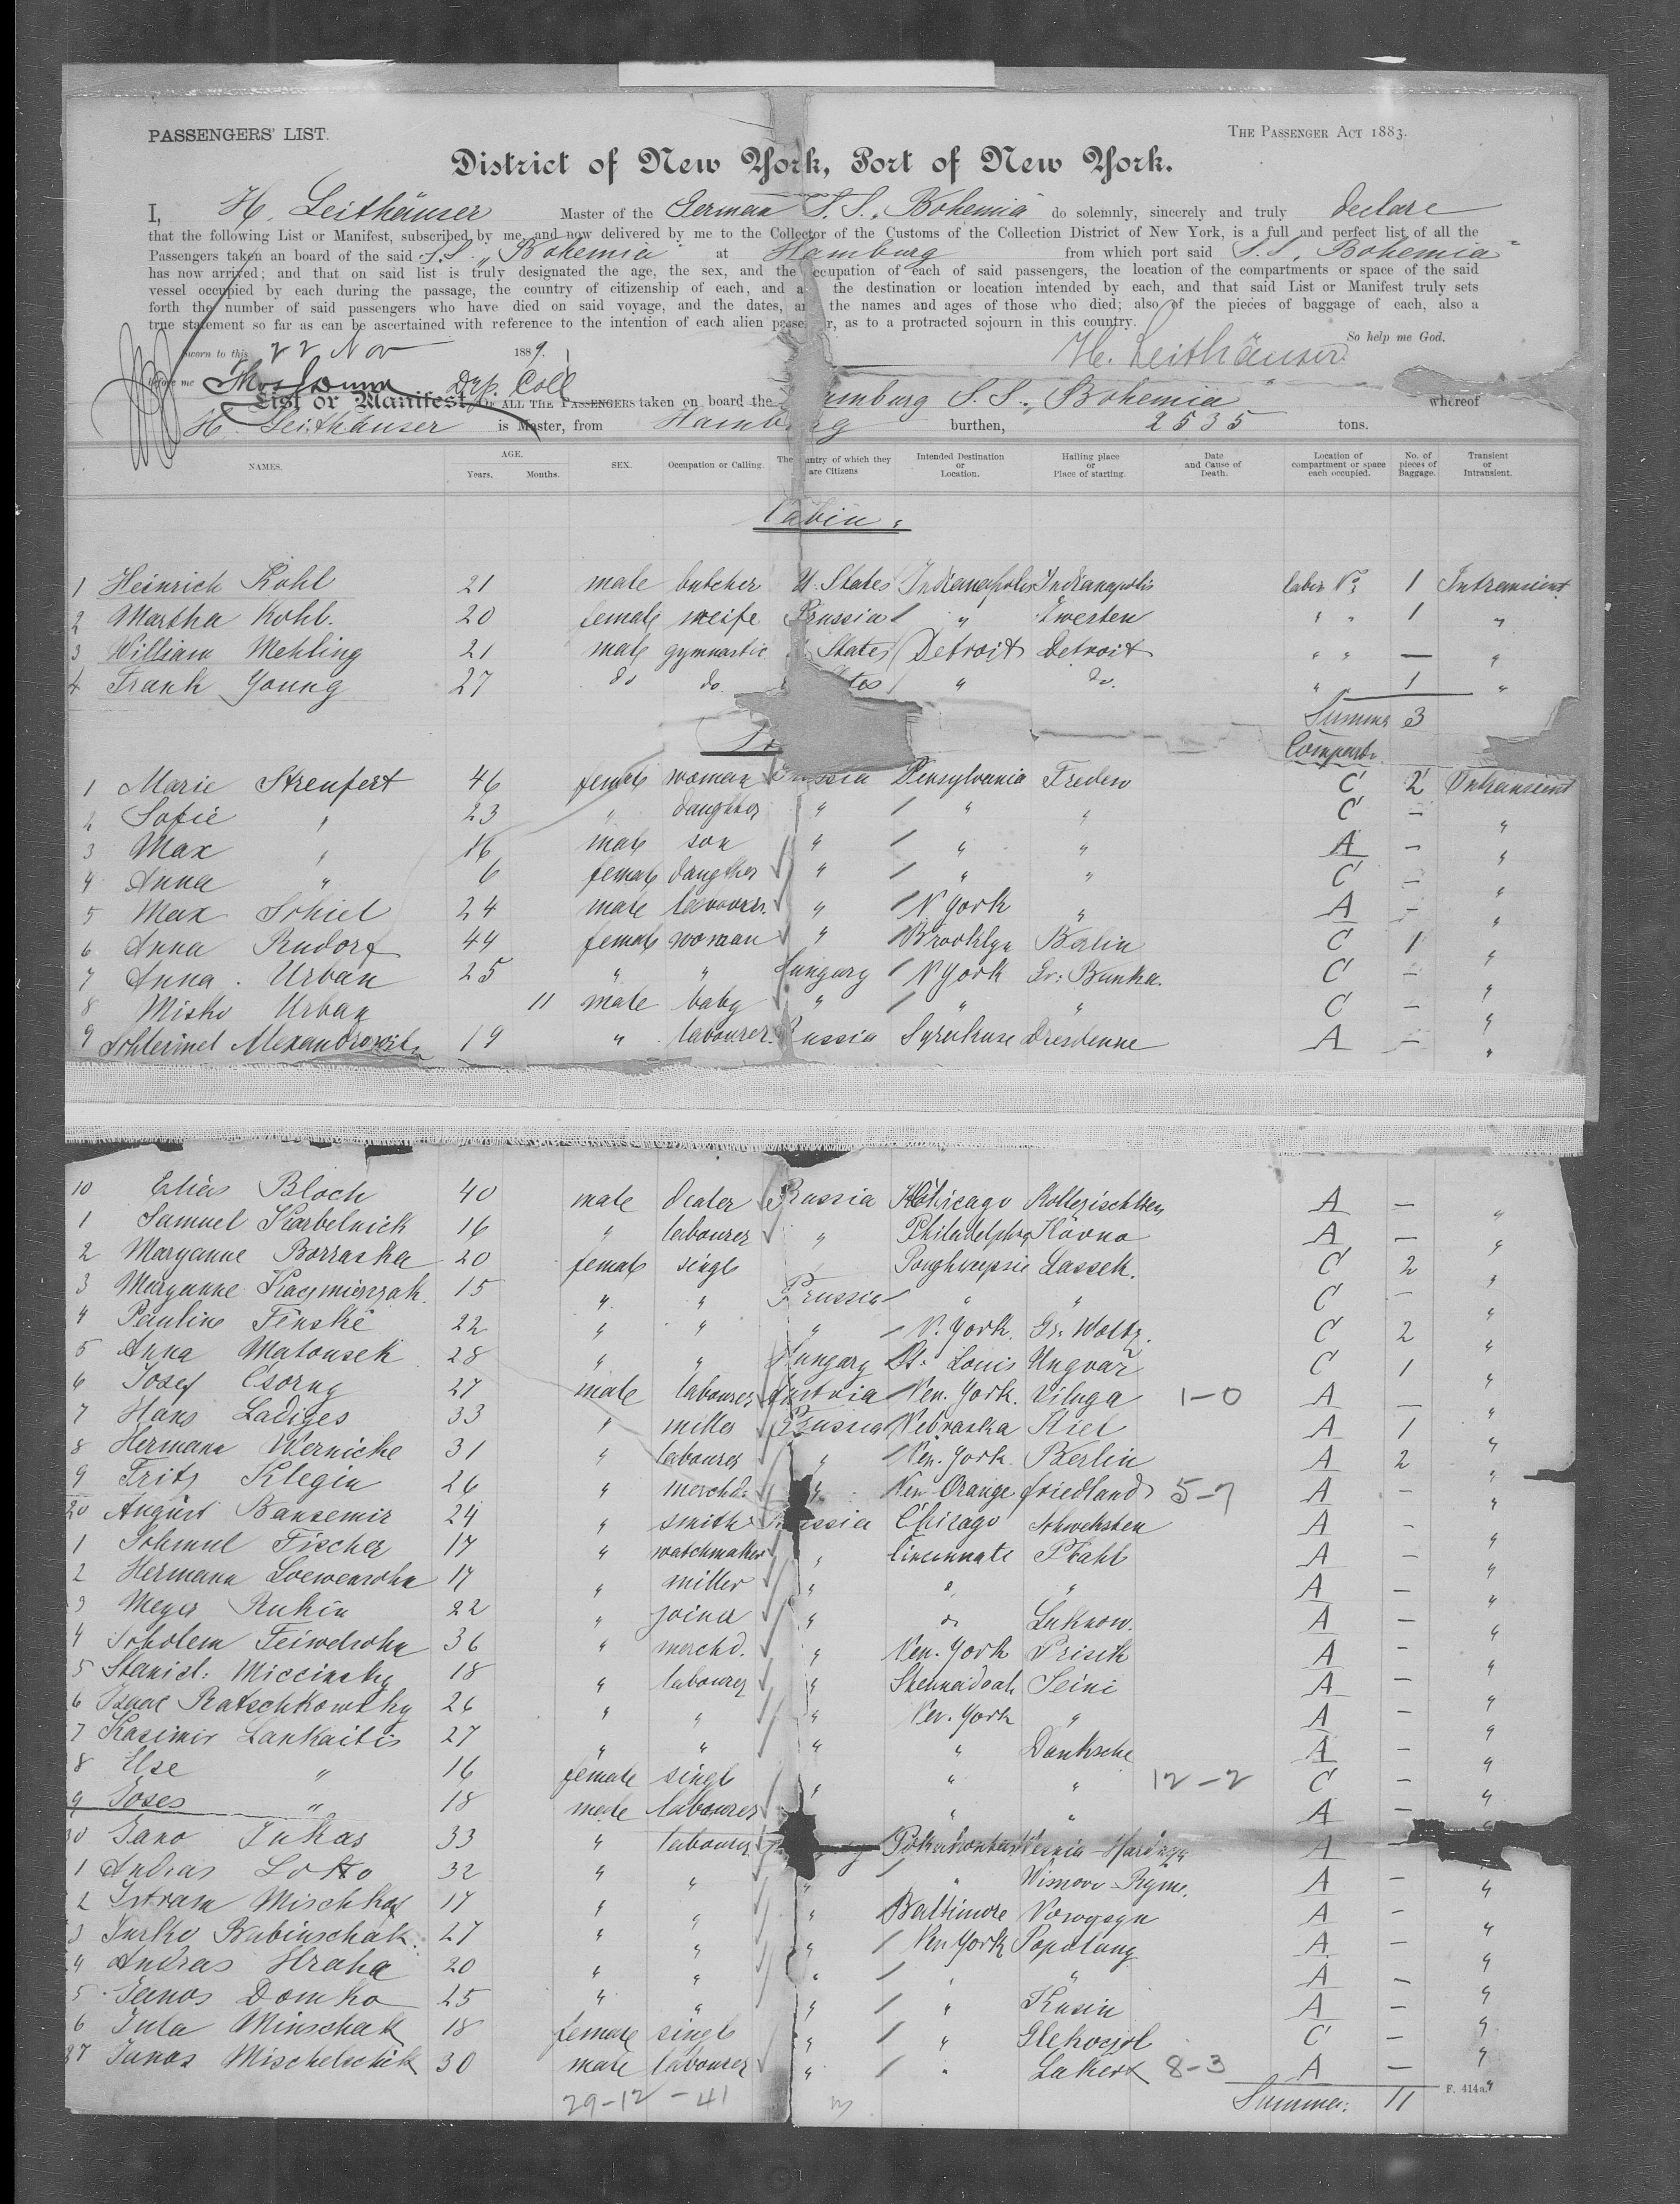 PASSENGERS' LIST.
THE PASSENGER ACT 1883.
District of New York, Port of New York.
I, H. Leithäuser Master of the German S.S. „Bohemia" do solemnly, sincerely and truly declare
that the following List or Manifest, subscribed by me, and now delivered by me to the Collector of the Customs of the Collection District of New York, is a full and perfect list of all the
Passengers taken an board of the said S.S. „Bohemia" at Hamburg from which port said S.S. „Bohemia"
has now arrived; and that on said list is truly designated the age, the sex, and the occupation of each of said passengers, the location of the compartments or space of the said
vessel occupied by each during the passage, the country of citizenship of each, and a the destination or location intended by each, and that said List or Manifest truly sets
forth the number of said passengers who have died on said voyage, and the dates, an the names and ages of those who died; also of the pieces of baggage of each, also a
true statement so far as can be ascertained with reference to the intention of each alien passe r, as to a protracted sojourn in this country.
So help me God.
sworn to this 22 Nov 1889.
H. Leithäuser
before me Dep. Coll
List or Manifest OF ALL THE PASSENGERS taken on board the amburg S.S. „Bohemia" whereof
H. Leithäuser is Master, from Hamburg burthen, 2535 tons.
NAMES. AGE. Years. Months. SEX. Occupation or Calling. The untry of which they are Citizens Intended Destination or Location. Hailing place or Place of starting. Date and Cause of Death. Location of compartment or space each occupied. No. of pieces of Baggage. Transient or Intransient.
Cabin.
1 Heinrich Kohl 21 male butcher U. States Indianapolis Indianapolis 1 Intransient
2 Martha Kohl. 20 female weife Prussia " Zwesten " " 1 "
3 William Mehling 21 male gymnastic States Detroit Detroit " " — "
4 Frank Young 27 do do. " do. " " 1 "
Summa 3
Compart.
1 Marie Strenfert 46 female woman Pensylvania Freden C 2 Intransient
2 Sofie " 23 " daughter " " " C — "
3 Max " 16 male son " " " A — "
4 Anna " 6 female daugther " " " C — "
5 Max Schiel 24 male labourer " N York " A — "
6 Anna Rudorf 44 female woman " Brooklyn Berlin C 1 "
7 Anna Urban 25 " " Hungary N York Gr. Bunka. C — "
8 Misko Urban 11 male baby " " " C — "
9 Alexandrowitz 19 " labourer Russia Syrakuse Dresdenne A — "
10 Elias Bloch 40 male dealer Russia Chicago A — "
1 Samuel Karbelnick 16 " labourer " Philadelphia Kovno A — "
2 Maryanne Borraska 20 female singl Poughkeepsie Lassek. C 2 "
3 Maryanne Kacsmierzak 15 " " Prussia " " C — "
4 Pauline Fenske 22 " " " N. York. Gr. Woltz. C 2 "
5 Anna Matousek 28 " " Hungary St. Louis Ungvar C 1 "
6 Josef Csorny 27 male labourer Austria New. York. Viluga 1-0 A — "
7 Hans Ladiges 33 " miller Prussia Nebraska Kiel A 1 "
8 Hermann Wernicke 31 " labourer " New. York. Berlin A 2 "
9 Fritz Klegin 26 " merchd. " New Orange friedland 5-7 A — "
20 August Bansemir 24 " smith Russia Chicago A — "
1 Schmul Fischer 17 " watchmaker " Cincinnate Plahl A — "
2 Hermann Loewensohn 17 " miller " " " A — "
3 Meyer Rukin 22 " joiner " " Luknow. A — "
4 Scholem Feiwelsohn 36 " merchd. " New. York Prisik A — "
5 Stanisl. Miccinsky 18 " labourer " Shennidoah Seini A — "
6 Isaac Ratschkowsky 26 " " " New. York " A — "
7 Kasimir Lankaitis 27 " " " " Danksche A — "
8 Else " 16 female singl " " " 12-2 C — "
9 Joses " 18 male labourer " " A — "
30 Jano Jukas 33 " labourer A —
1 Andras Lotto 32 " " " " A — "
2 Istvan Mischkof 17 " " " Baltimore A — "
3 Jurko Babinschak. 27 " " " New York A — "
4 Andras Hraha 20 " " " " " A — "
5 Janos Domko 25 " " " " Kusin A — "
6 Jula Minschak 18 female singl " " C — "
37 Janos Mischelschik 30 male labourer " " Lakert 8-3 A — "
29-12-41
Summa: 11
F. 414a.